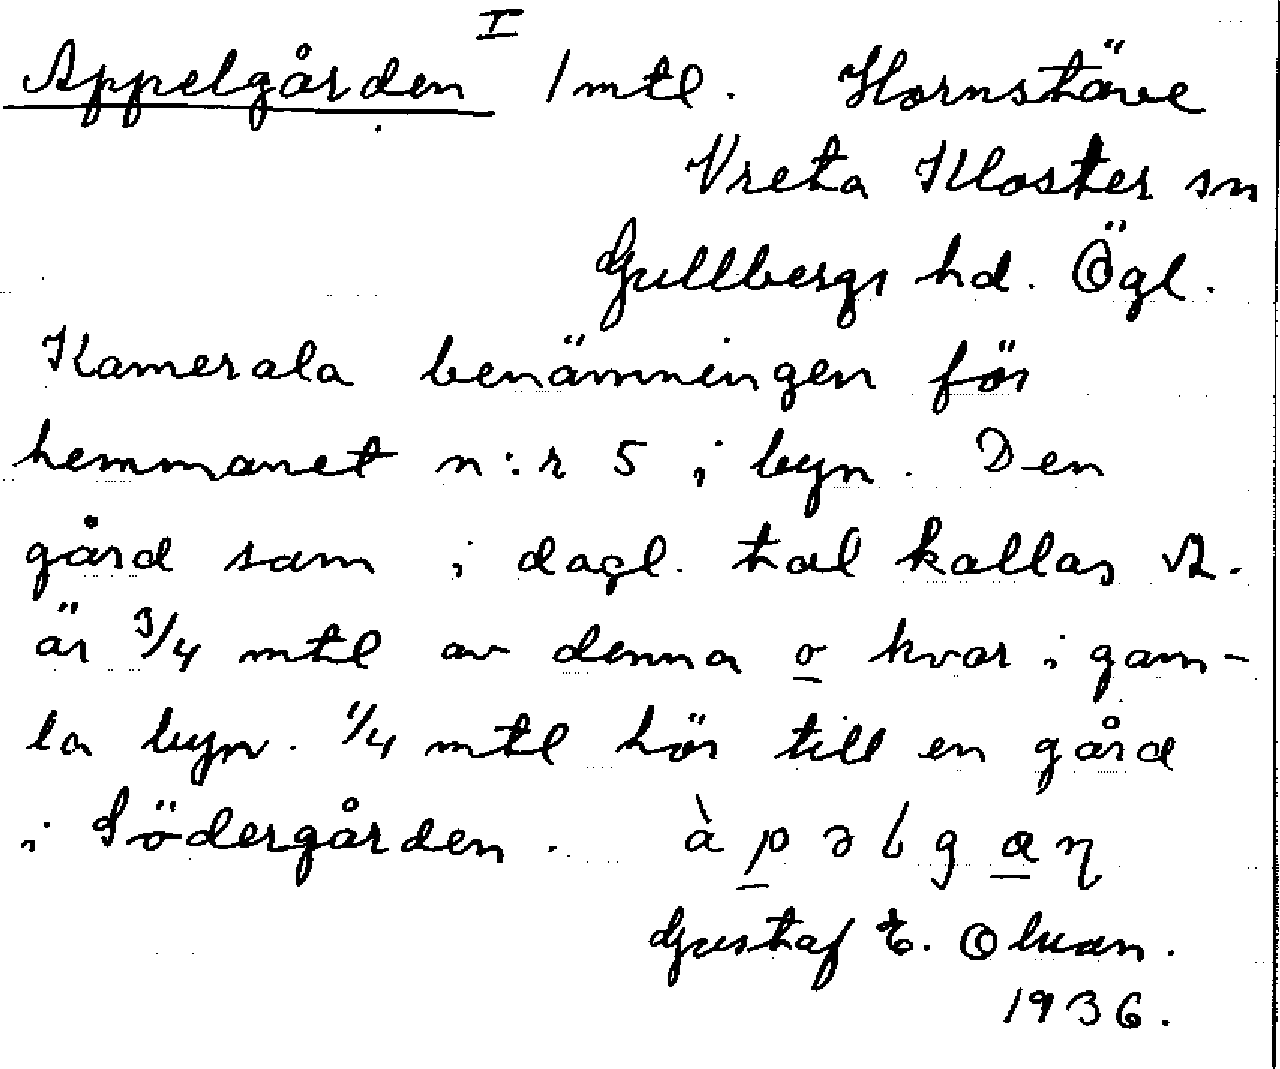 I
Appelgården 1 mtl. Hornstäve
Vreta Kloster sn
Gullbergs hd. Ögl.
Kamerala benämningen för
hemmanet n:r 5 i byn. Den
gård som i dagl. tal kallas A.
är 3/4 mtl av denna o kvar i gam-
la byn. 1/4 mtl hör till en gård
i Södergården.
Gustaf E. Olsson.
1936.